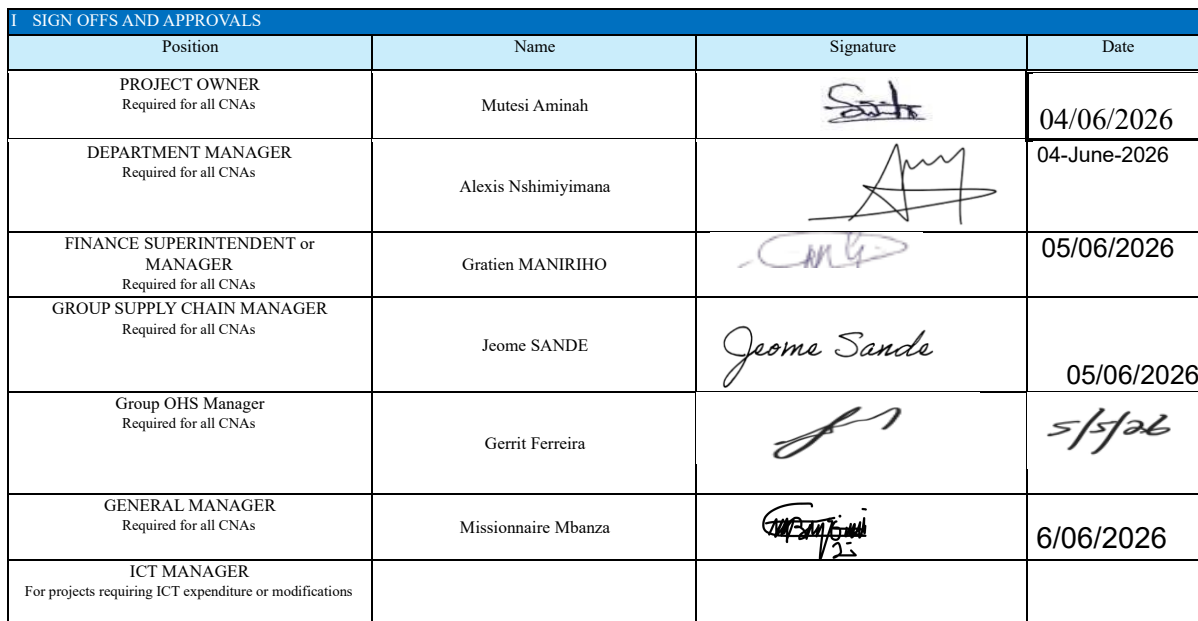 I SIGN OFFS AND APPROVALS
Position Name Signature Date
PROJECT OWNER
Required for all CNAs
Mutesi Aminah
04/06/2026
DEPARTMENT MANAGER
Required for all CNAs
Alexis Nshimiyimana
04-June-2026
FINANCE SUPERINTENDENT or
MANAGER
Required for all CNAs
Gratien MANIRIHO
05/06/2026
GROUP SUPPLY CHAIN MANAGER
Required for all CNAs
Jeome SANDE
Jeome Sande
05/06/2026
Group OHS Manager
Required for all CNAs
Gerrit Ferreira
5/5/26
GENERAL MANAGER
Required for all CNAs
Missionnaire Mbanza
6/06/2026
ICT MANAGER
For projects requiring ICT expenditure or modifications